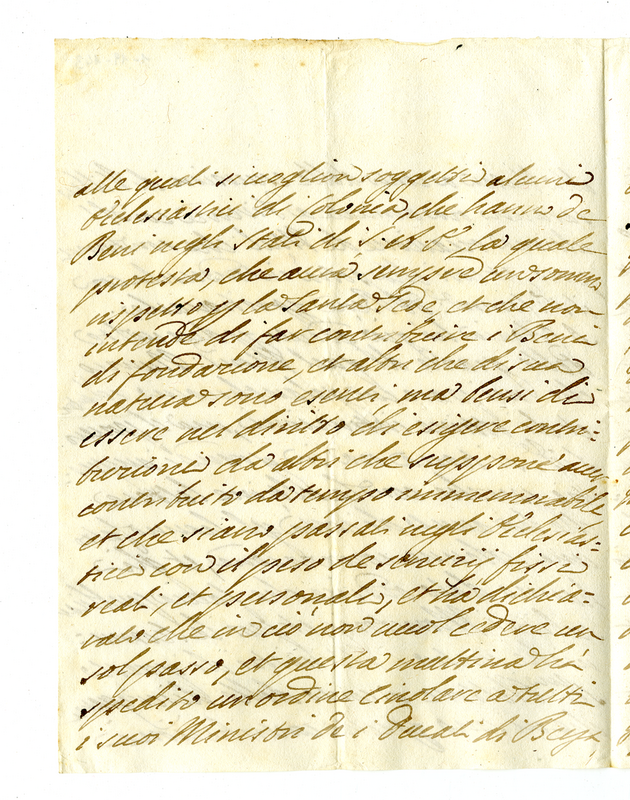 alle quali si voglion soggetti alcuni
Ecclesiastici di Colonia, che hanno de
Beni negli Stati di S. A. E. la quale
protesta, che avrà sempre un sommo
rispetto p la Santa Sede, et che non
intende di far contribuire i Beni
di fondazione, et altri che di sua
natura sono esenti, ma bensi di
essere nel diritto di esigere contri=
buzioni da altri che suppone aver
contribuito da tempo immemorabile
et che siano passati negli Ecclesias=
tici con il peso de servizij fissi
reali, et personali, et ha dichia=
rato che in ciò non vuol cedere un
sol passo, et questa mattina hà
spedito un ordine circolare a tutti
i suoi Ministri de i Ducati di Berga,